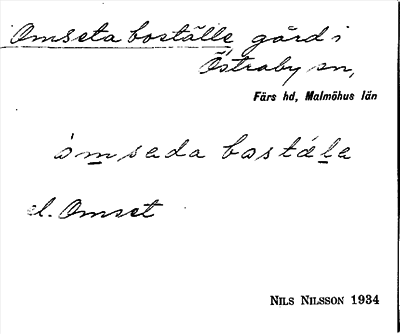 Omseta boställe gård i
Östraby sn,
Färs hd, Malmöhus län
òmseda bostála
el. Omset
NILS NILSSON 1934